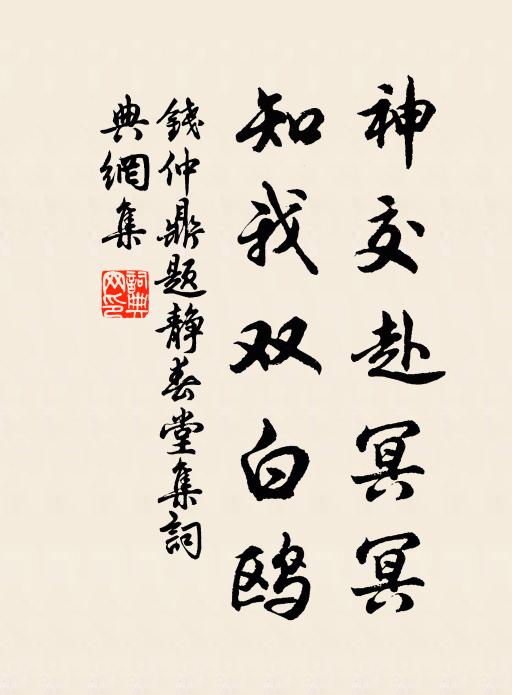 神交赴冥冥
知我双白鸥
錢仲鼎题靜春堂集詞
典網集
詞典
网印